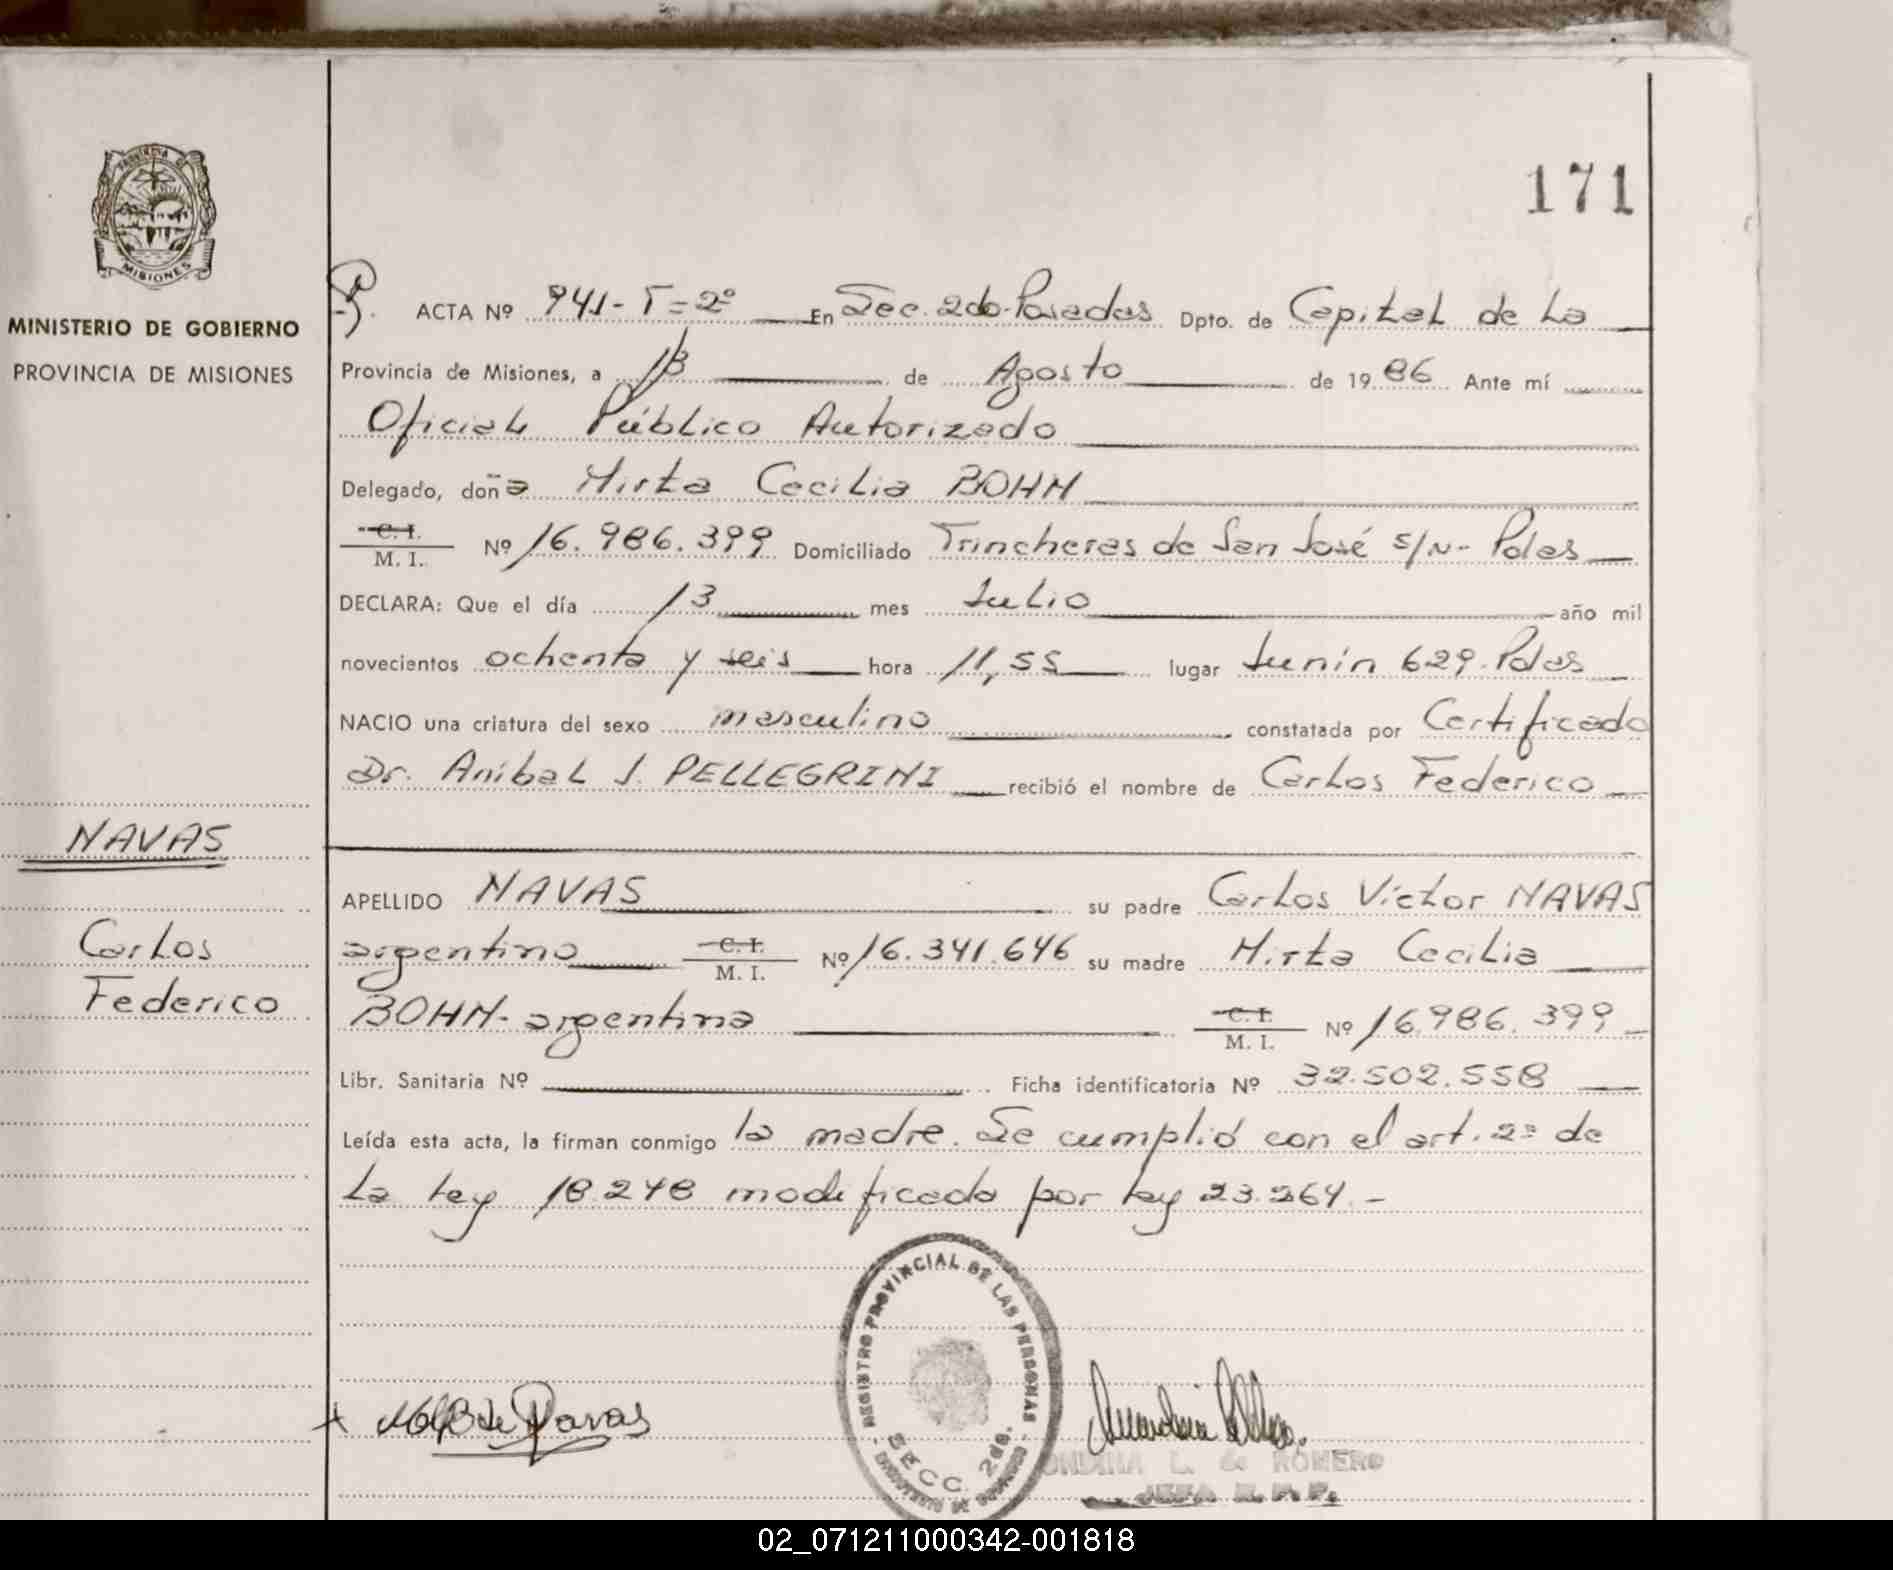 171
PROVINCIA DE
MISIONES
MINISTERIO DE GOBIERNO
PROVINCIA DE MISIONES
ACTA Nº 941 - T = 2º En Sec. 2da. Posadas Dpto. de Capital de La
Provincia de Misiones, a 18 de Agosto de 1986 Ante mí
Oficial Público Autorizado
Delegado, doña Mirta Cecilia BOHN
C. I.
M. I. Nº 16.986.399 Domiciliado Trincheras de San José s/n - Pdas
DECLARA: Que el día 13 mes Julio año mil
novecientos ochenta y seis hora 11,55 lugar Junín 629. Pdas
NACIO una criatura del sexo masculino constatada por Certificado
Dr. Aníbal J. PELLEGRINI recibió el nombre de Carlos Federico
NAVAS
Carlos
Federico
APELLIDO NAVAS su padre Carlos Víctor NAVAS
argentino C. I. M. I. Nº 16.341.646 su madre Mirta Cecilia
BOHN - argentina C. I. M. I. Nº 16.986.399
Libr. Sanitaria Nº Ficha identificatoria Nº 32.502.558
Leída esta acta, la firman conmigo la madre. Se cumplió con el art. 2º de
La Ley 18.248 modificada por Ley 23.264. -
REGISTRO PROVINCIAL DE LAS PERSONAS
SECC. 2da.
MINISTERIO DE GOBIERNO
de Navas
L. de ROMERO
JEFA
02_071211000342-001818